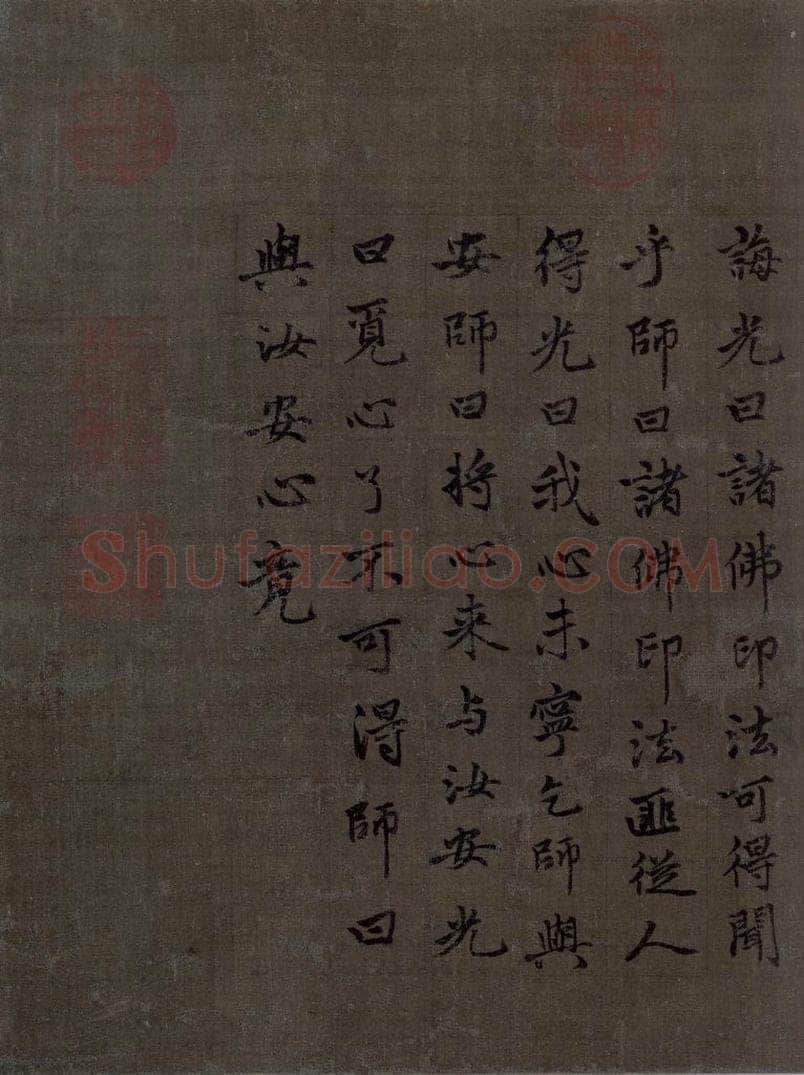 誨光曰諸佛印法可得聞
乎師曰諸佛印法匪從人
得光曰我心未寧乞師與
安師曰將心来与汝安光
曰覓心了不可得師曰
與汝安心竟
Shufaziliao.COM